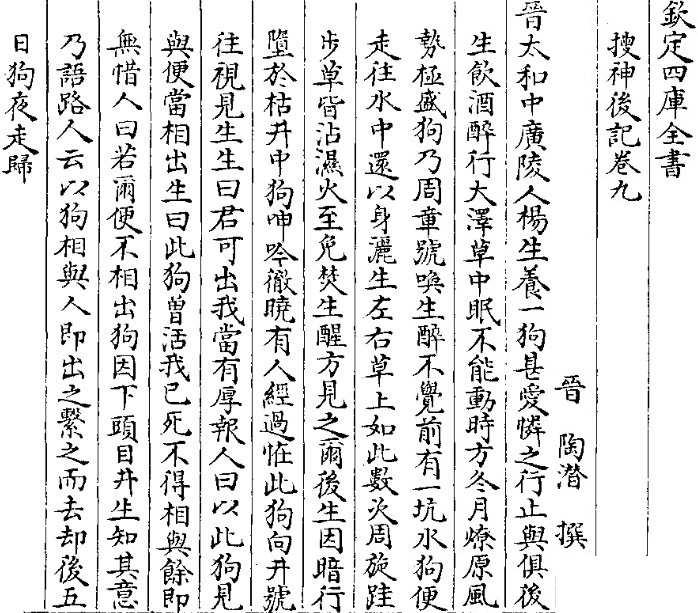 欽定四庫全書
搜神後記卷九
晉 陶潛 撰
晉太和中廣陵人楊生養一狗甚愛憐之行止與俱後
生飲酒醉行大澤草中眠不能動時方冬月燎原風
勢極盛狗乃周章號喚生醉不覺前有一坑水狗便
走往水中還以身灑生左右草上如此數次周旋跬
步草皆沾濕火至免焚生醒方見之爾後生因暗行
墮於枯井中狗呻吟徹曉有人經過恠此狗向井號
往視見生生曰君可出我當有厚報人曰以此狗見
與便當相出生曰此狗曾活我已死不得相與餘即
無惜人曰若爾便不相出狗因下頭目井生知其意
乃語路人云以狗相與人即出之繫之而去却後五
日狗夜走歸